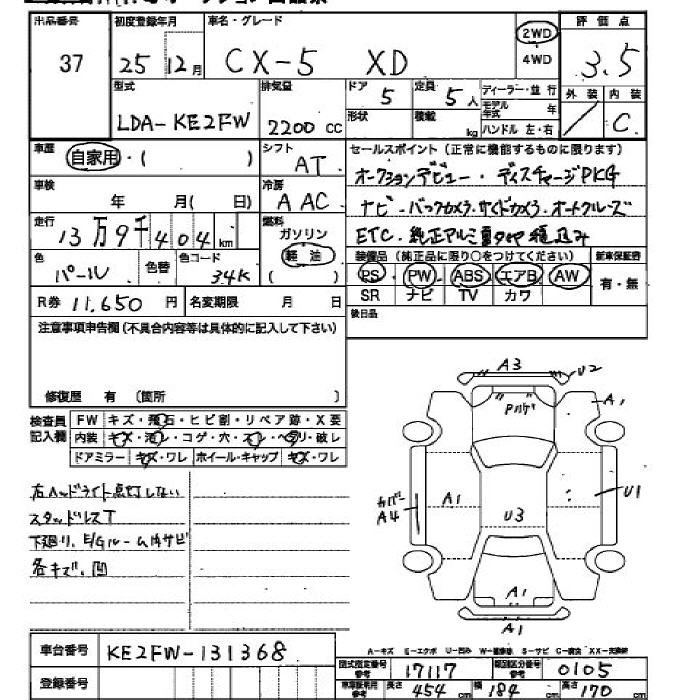 出品番号 37
初度登録年月 25年12月
車名・グレード CX-5 XD
2WD
4WD
評価点 3.5
外装 /
内装 C
型式 LDA-KE2FW
排気量 2200 cc
ドア 5
形状
定員 5人
積載 kg
ディーラー・並行
モデル年式 年
ハンドル 左・右
車歴 自家用・( )
シフト AT
車検 年 月( 日)
冷房 AAC
走行 13万9千404km
燃料 ガソリン
軽油
( )
色 パール
色替
色コード 34K
R券 11,650円
名変期限 月 日
セールスポイント(正常に機能するものに限ります)
オークションデビュー・ディスチャージPKG
ナビ・バックカメラ・サイドカメラ・オートクルーズ
ETC・純正アルミ
積込み
装備品(純正品に限り○をつけてください)
新車保証書
PS PW ABS エアB AW
有・無
SR ナビ TV カワ
後日品
注意事項申告欄(不具合内容等は具体的に記入して下さい)
修復歴 有 (箇所 )
検査員記入欄
FW キズ・飛石・ヒビ割・リペア跡・X要
内装 キズ・汚レ・コゲ・穴・スレ・ヘタリ・破レ
ドアミラー キズ・ワレ ホイール・キャップ キズ・ワレ
右ヘッドライト点灯しない
スタッドレスT
下廻り、E/Gルーム内サビ
各キズ、凹
A3
U2
A1
A1
カバー
A4
U1
U3
A1
A1
A-キズ E-エクボ U-凹み W-補修跡 S-サビ C-腐食 XX-交換済
車台番号 KE2FW-131368
登録番号
型式指定番号 参考 17117
類別区分番号 参考 0105
車検証明用 参考 長さ 454 cm 幅 184 cm 高さ 170 cm